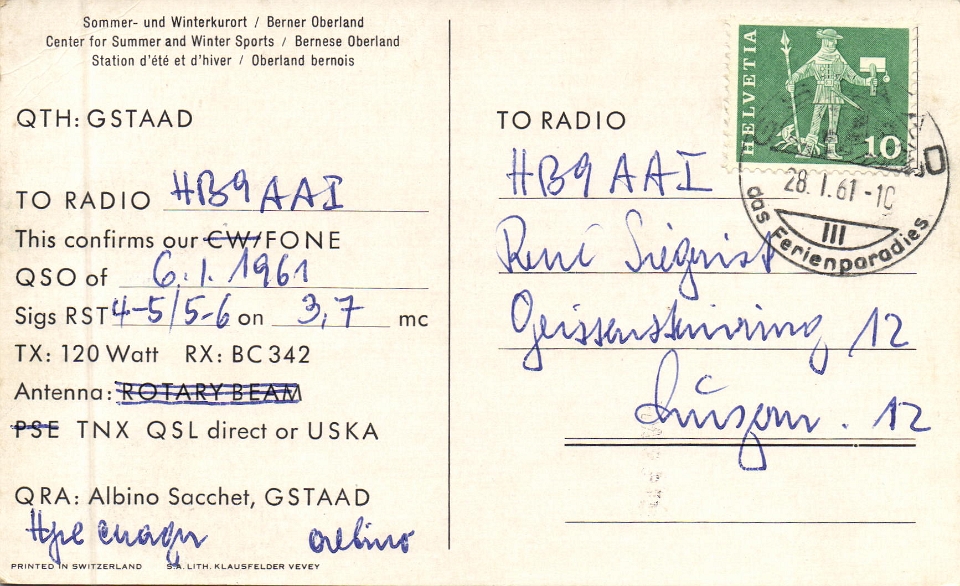 Sommer- und Winterkurort / Berner Oberland
Center for Summer and Winter Sports / Bernese Oberland
Station d'été et d'hiver / Oberland bernois
QTH: GSTAAD
TO RADIO HB9AAI
This confirms our CW/FONE
QSO of 6.1.1961
Sigs RST 4-5/5-6 on 3,7 mc
TX: 120 Watt RX: BC 342
Antenna: ROTARY BEAM
PSE TNX QSL direct or USKA
QRA: Albino Sacchet, GSTAAD
albino
PRINTED IN SWITZERLAND S.A. LITH. KLAUSFELDER VEVEY
HELVETIA
10
28.I.61-10
III
das Ferienparadies
TO RADIO
HB9AAI
René Siegrist
Geissensteinring 12
Luzern. 12